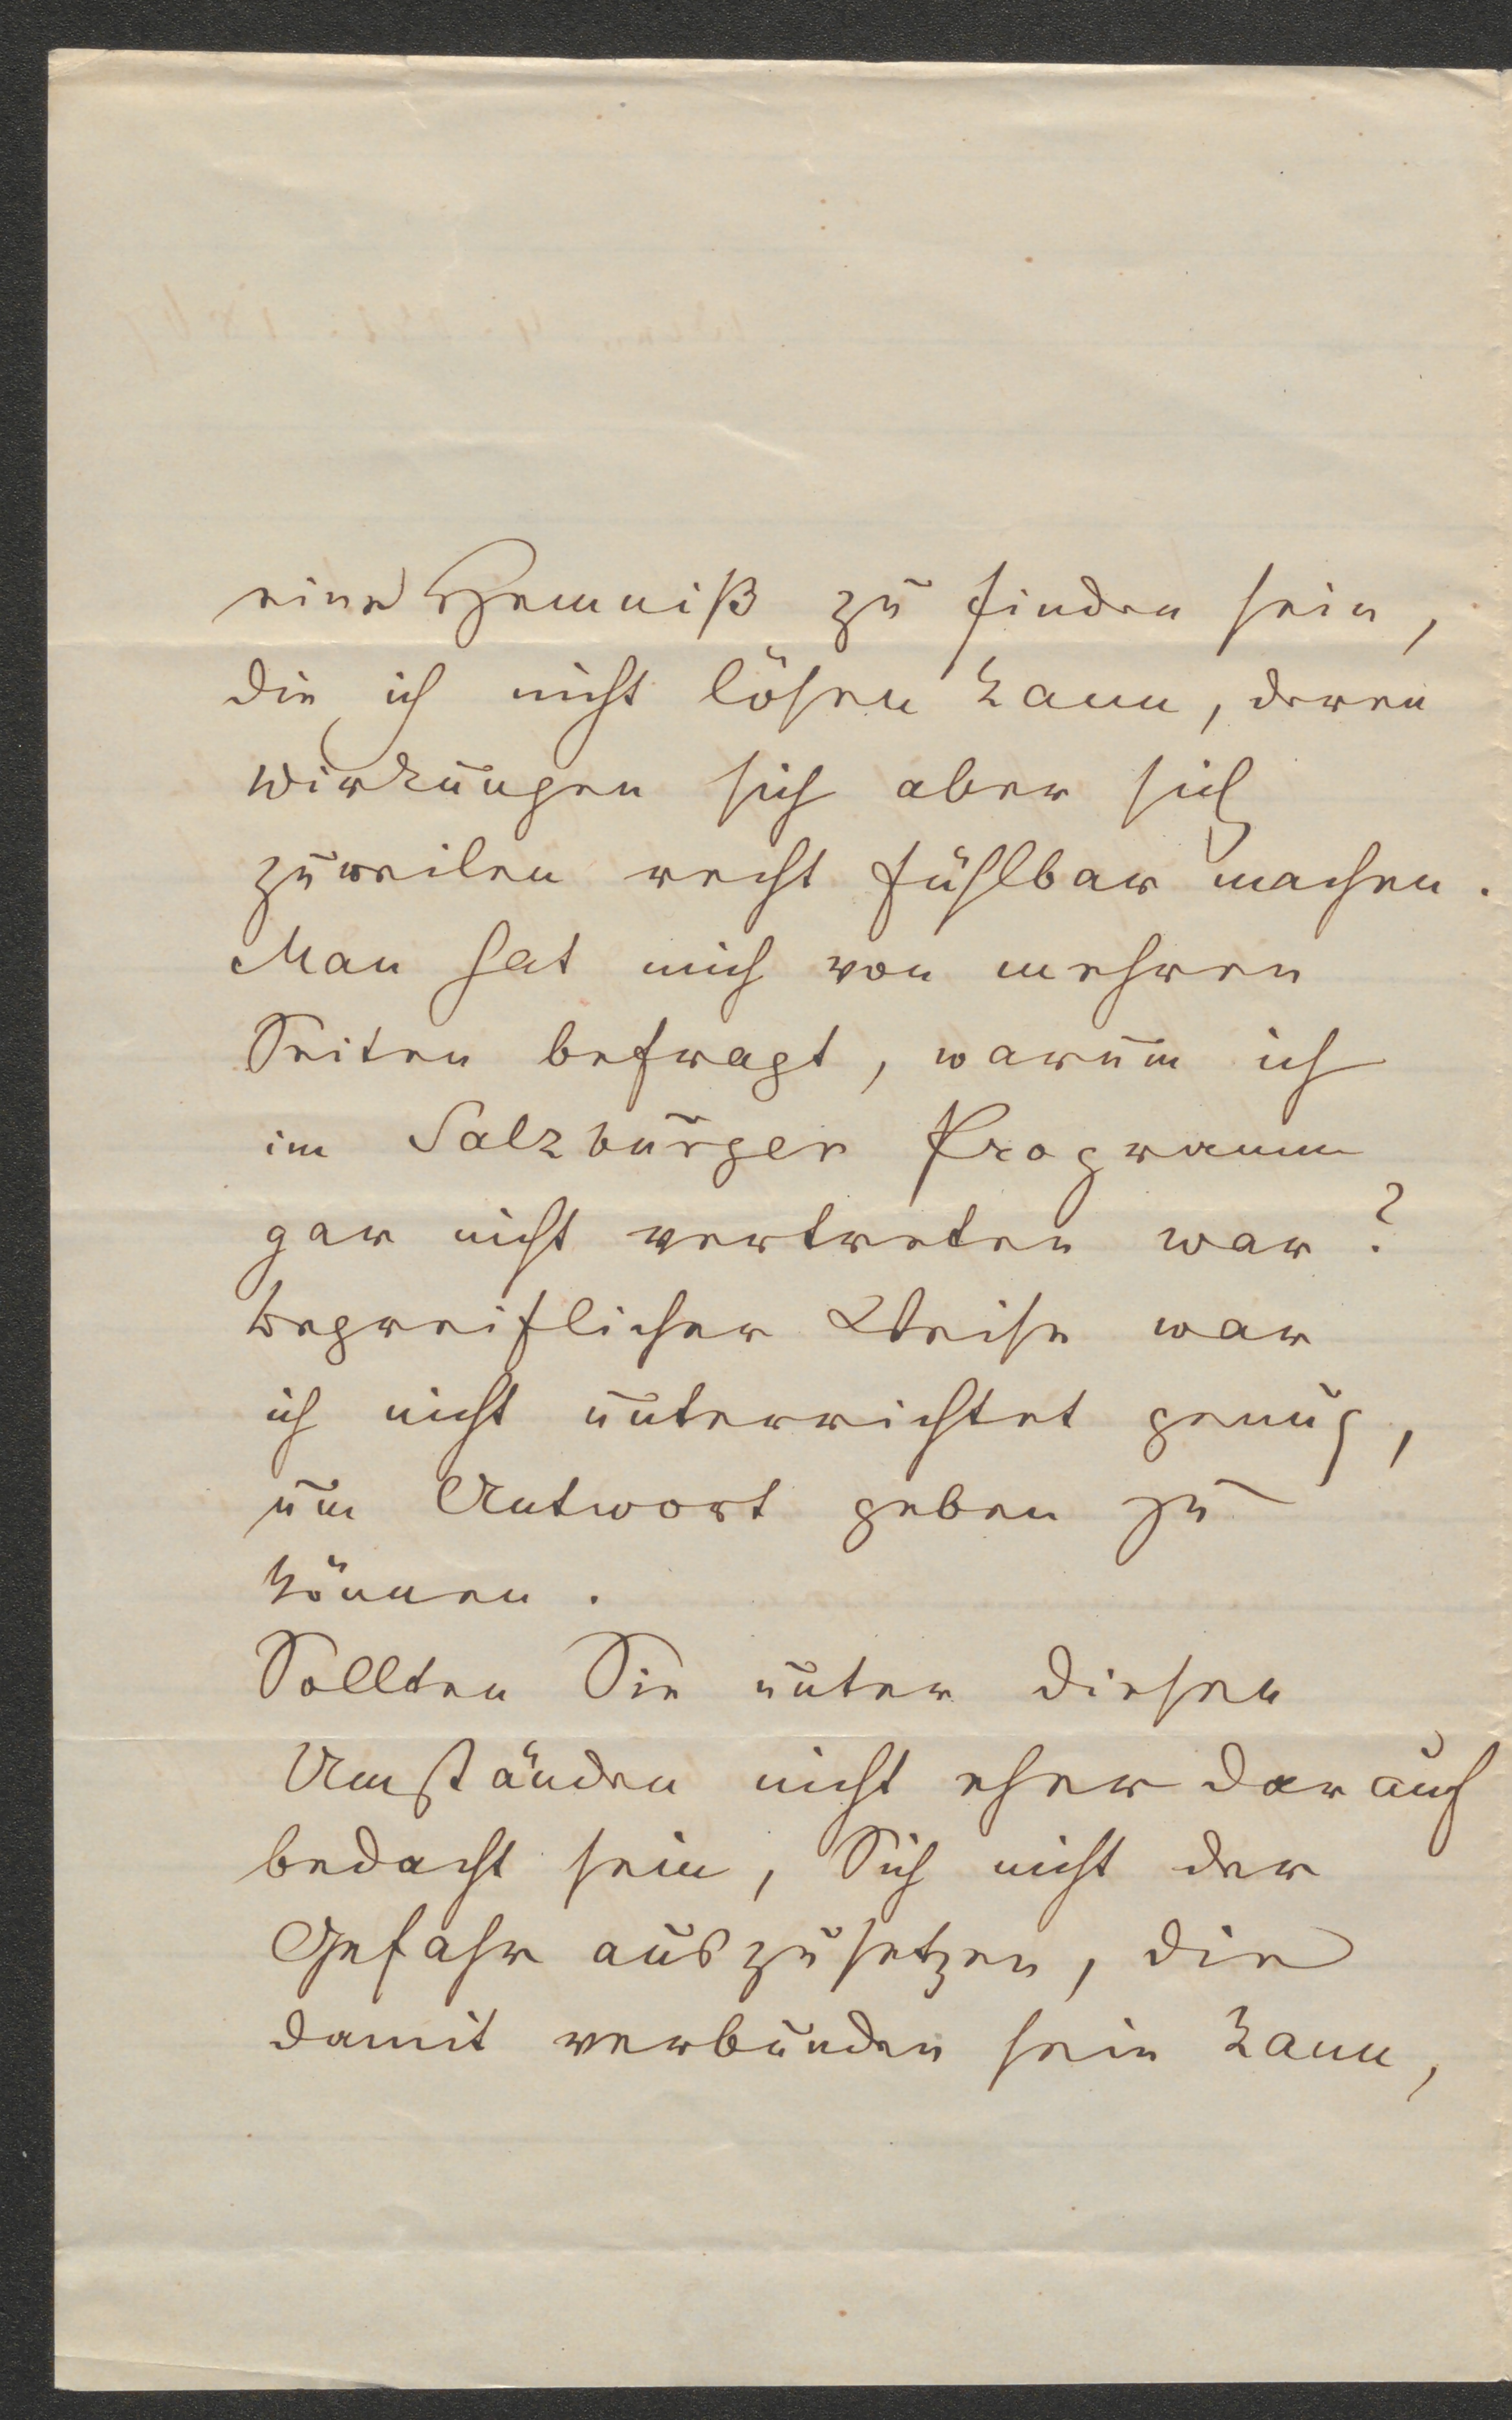 eine Hemniß zu finden sein,
die ich nicht lösen kann, deren
Wirkungen sich aber sich
zuweilen recht fühlbar machen.
Man hat mich von mehren
Seiten befragt, warum ich
im Salzburger Programm
gar nicht vertreten war?
Begreiflicher Weise war
ich nicht unterrichtet genug,
um Antwort geben zu
können.
Sollten Sie unter diesen
Umständen nicht eher darauf
bedacht sein, Sich nicht der
Gefahr auszusetzen, die
damit verbunden sein kann,